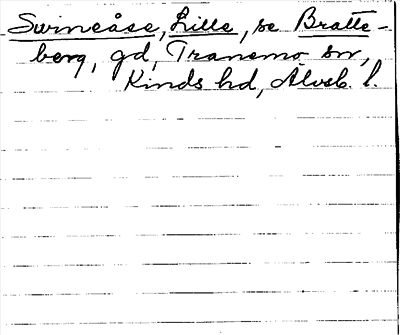 Svineåse, Lille, se Bratte-
berg, gd, Tranemo sn,
Kinds hd, Älvsb. l.